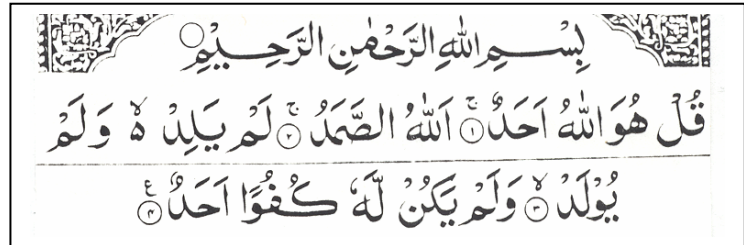 بِسْمِ اللّٰهِ الرَّحْمٰنِ الرَّحِيْمِ
قُلْ هُوَ اللّٰهُ اَحَدٌ ۚ﴿۱﴾ اَللّٰهُ الصَّمَدُ ۚ﴿۲﴾ لَمْ يَلِدْ ۙ۬ وَلَمْ
يُوْلَدْ ۙ﴿۳﴾ وَلَمْ يَكُنْ لَّهٗ كُفُوًا اَحَدٌ ﴿۴﴾ ع